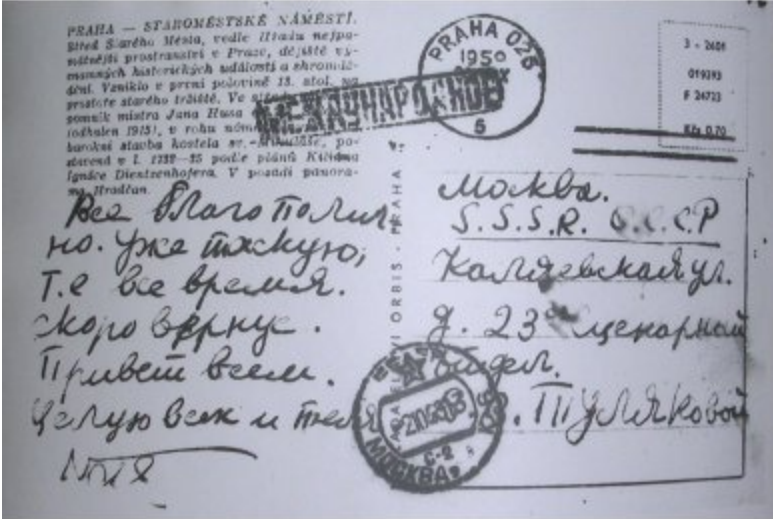 PRAHA — STAROMĚSTSKÉ NÁMĚSTÍ.
Střed Starého Města, vedle Hradu nejpa-
mátnější prostranství v Praze, dějiště vý-
znamných historických událostí a shromáž-
dění. Vzniklo v první polovině 13. stol. na
prostoře starého tržiště. Ve
pomník mistra Jana Husa
(odhalen 1915), v rohu
barokní stavba kostela sv. Mikuláše, po-
stavená v l. 1732—35 podle plánů Kiliána
Ignáce Dientzenhofera. V pozadí panora-
ma Hradčan.
МЕЖДУНАРОДНОЕ
PRAHA 025
1950
5
3 - 2601
019393
F 24723
Kčs 0.70
ORBIS - PRAHA
Все благополуч
но. Уже тоскую,
Т.е все время.
Скоро вернус.
Привет всем.
Целую всех и тебя
Москва.
S.S.S.R. С.С.С.Р
Каляевская ул.
д. 23 сценарный
В. Туляковой
МОСКВА